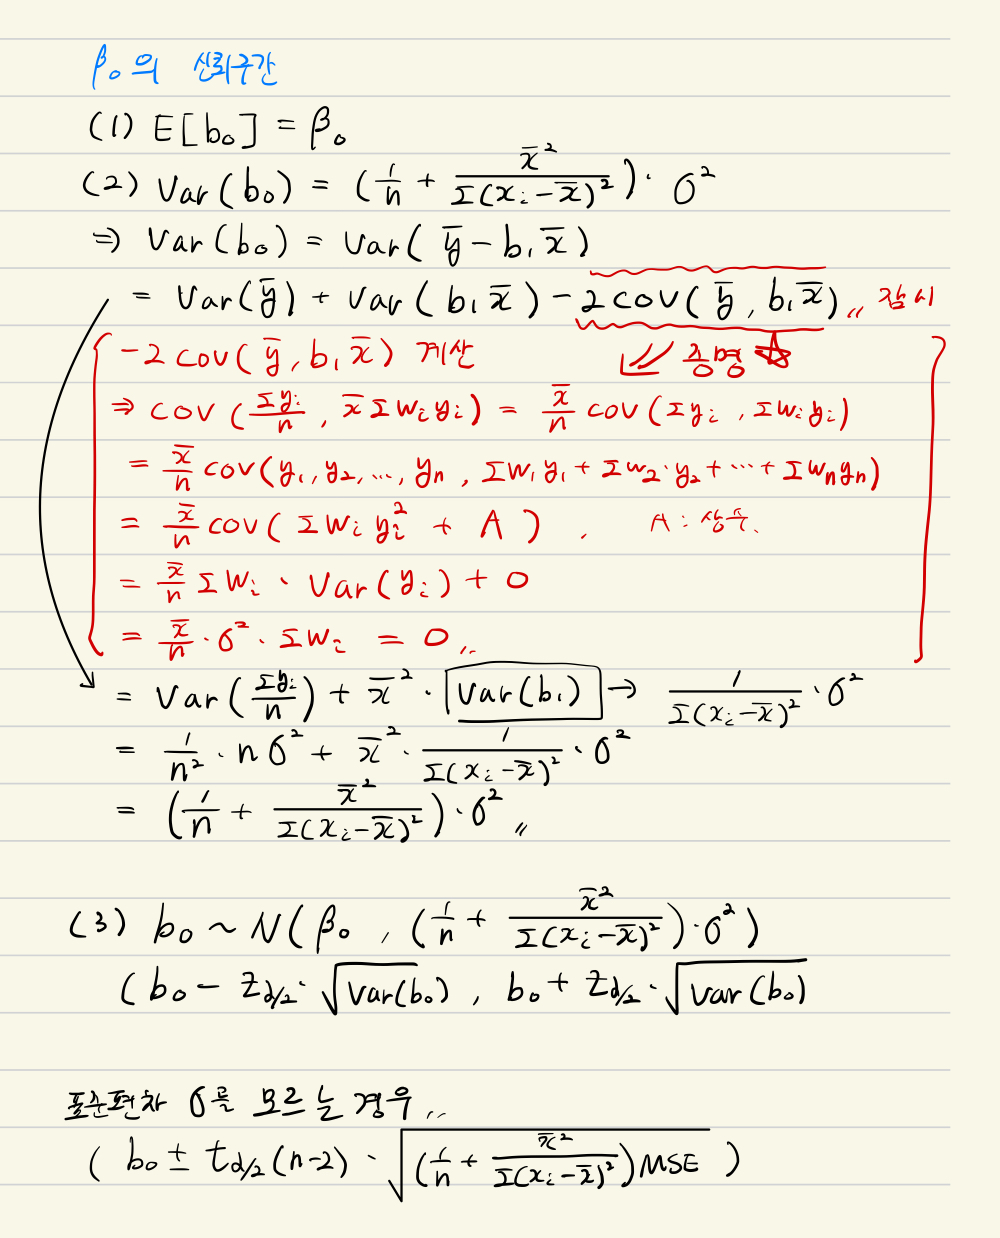 β₀의 신뢰구간
(1) E[b₀] = β₀
(2) Var(b₀) = (1/n + x̄²/Σ(xᵢ-x̄)²)·σ²
⇒ Var(b₀) = Var(ȳ - b₁x̄)
= Var(ȳ) + Var(b₁x̄) - 2cov(ȳ, b₁x̄)〃 잠시
-2cov(ȳ, b₁x̄) 계산 증명 ☆
⇒ cov(Σyᵢ/n, x̄Σwᵢyᵢ) = x̄/n cov(Σyᵢ, Σwᵢyᵢ)
= x̄/n cov(y₁, y₂, ..., yₙ, Σw₁y₁ + Σw₂·y₂ + ... + Σwₙyₙ)
= x̄/n cov(Σwᵢyᵢ² + A). A : 상수.
= x̄/n Σwᵢ · Var(yᵢ) + 0
= x̄/n · σ² · Σwᵢ = 0〃
= Var(Σyᵢ/n) + x̄² · Var(b₁) → 1/Σ(xᵢ-x̄)² · σ²
= 1/n² · nσ² + x̄² · 1/Σ(xᵢ-x̄)² · σ²
= (1/n + x̄²/Σ(xᵢ-x̄)²)·σ²〃
(3) b₀ ~ N(β₀, (1/n + x̄²/Σ(xᵢ-x̄)²)·σ²)
(b₀ - Z_α/2 · √Var(b₀), b₀ + Z_α/2 · √Var(b₀)
표준편차 σ를 모르는 경우〃
(b₀ ± t_α/2(n-2) · √(1/n + x̄²/Σ(xᵢ-x̄)²)MSE)